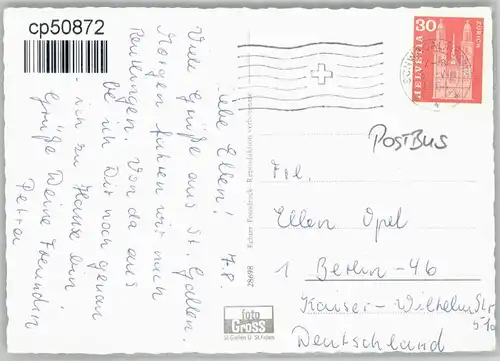 cp50872
7.8.
Liebe Ellen!
Viele Grüße aus St. Gallen.
Morgen fahren wir nach
Reutlingen. Von da aus
be ich Dir noch genau
ich zu Hause bin!
Grüße Deine Freundin
Petra
28698
Echter Fotodruck - Reproduktion verboten
foto
Gross
St. Gallen
30
HELVETIA
ZÜRICH
POSTBUS
Frl.
Ellen Opel
1 Berlin-46
Kaiser-Wilhelm Str
51a
Deutschland